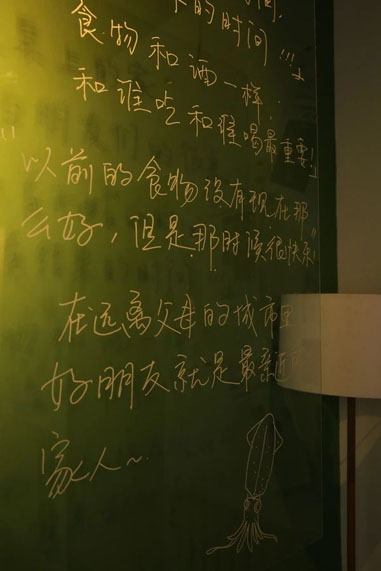 的时间，
食物和酒一样，
和谁吃和谁喝最重要！”
“以前的食物没有现在那
么好，但是那时候很快乐”
在远离父母的城市里
好朋友就是最亲近的
家人~